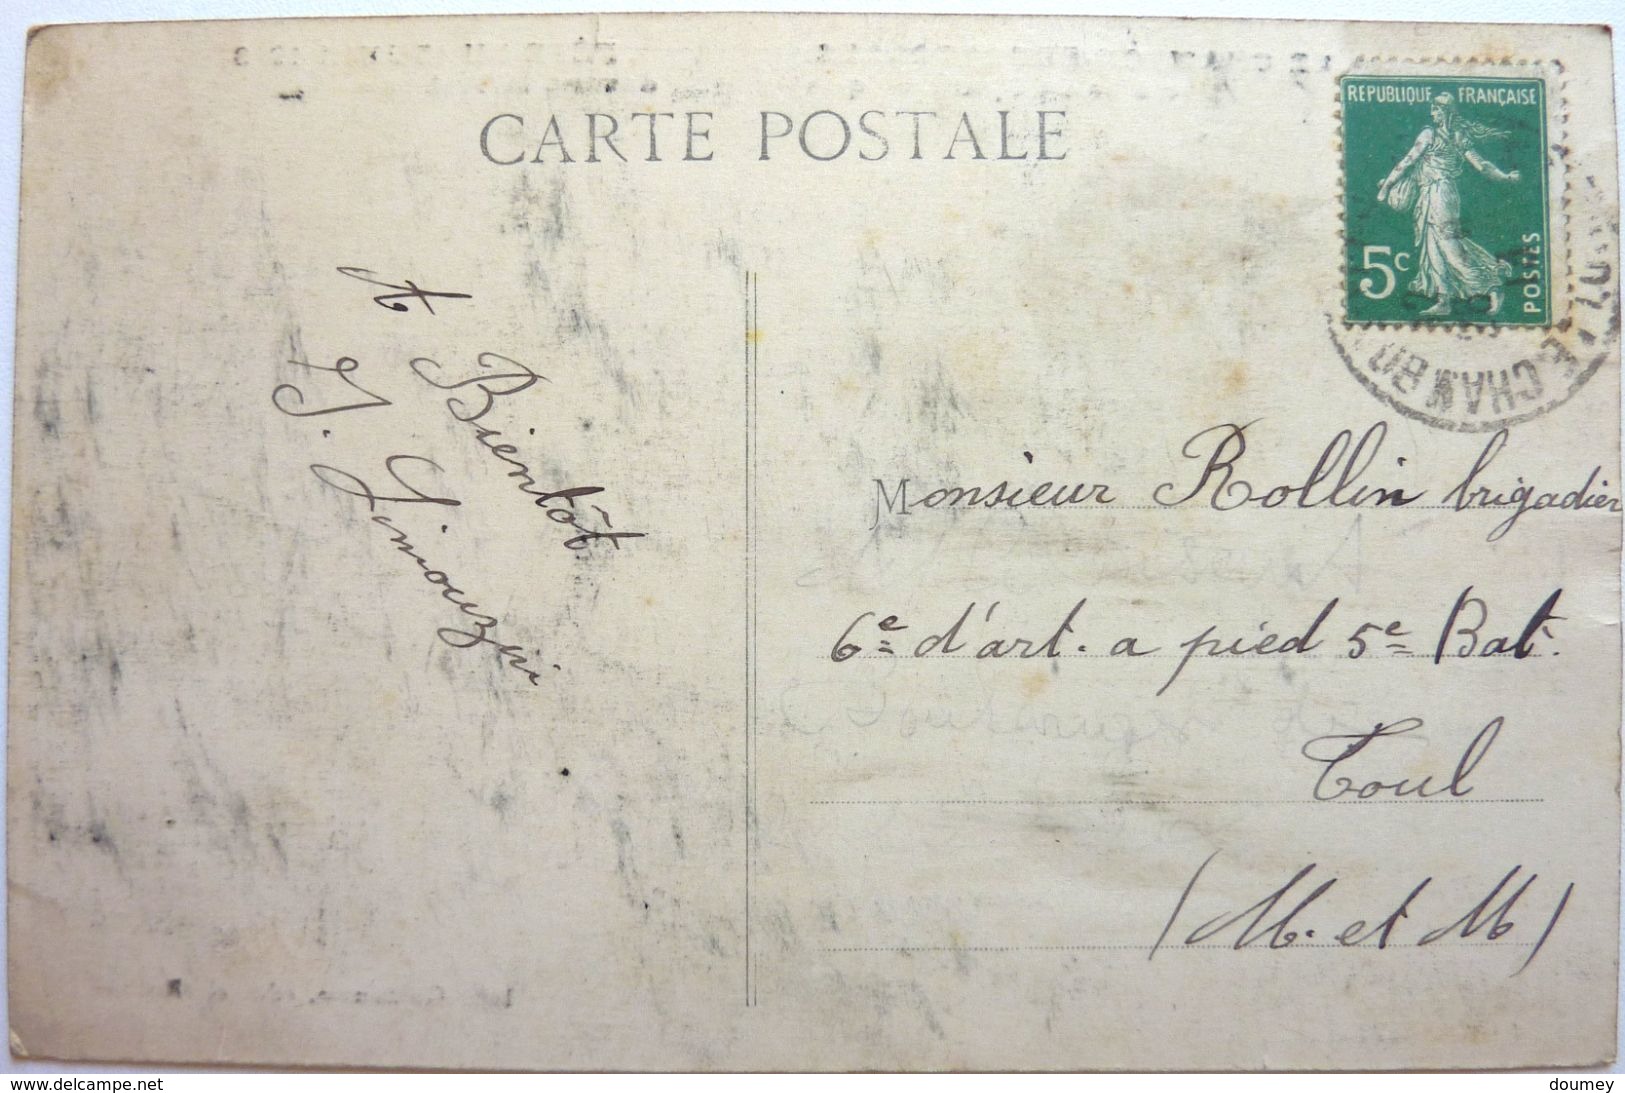 CARTE POSTALE
REPUBLIQUE FRANÇAISE
5c
POSTES
A Bientôt
J. Limouzin
Monsieur Rollin brigadier
6e d'art. a pied 5e Bat.
Toul
(M. et M)
www.delcampe.net
doumey